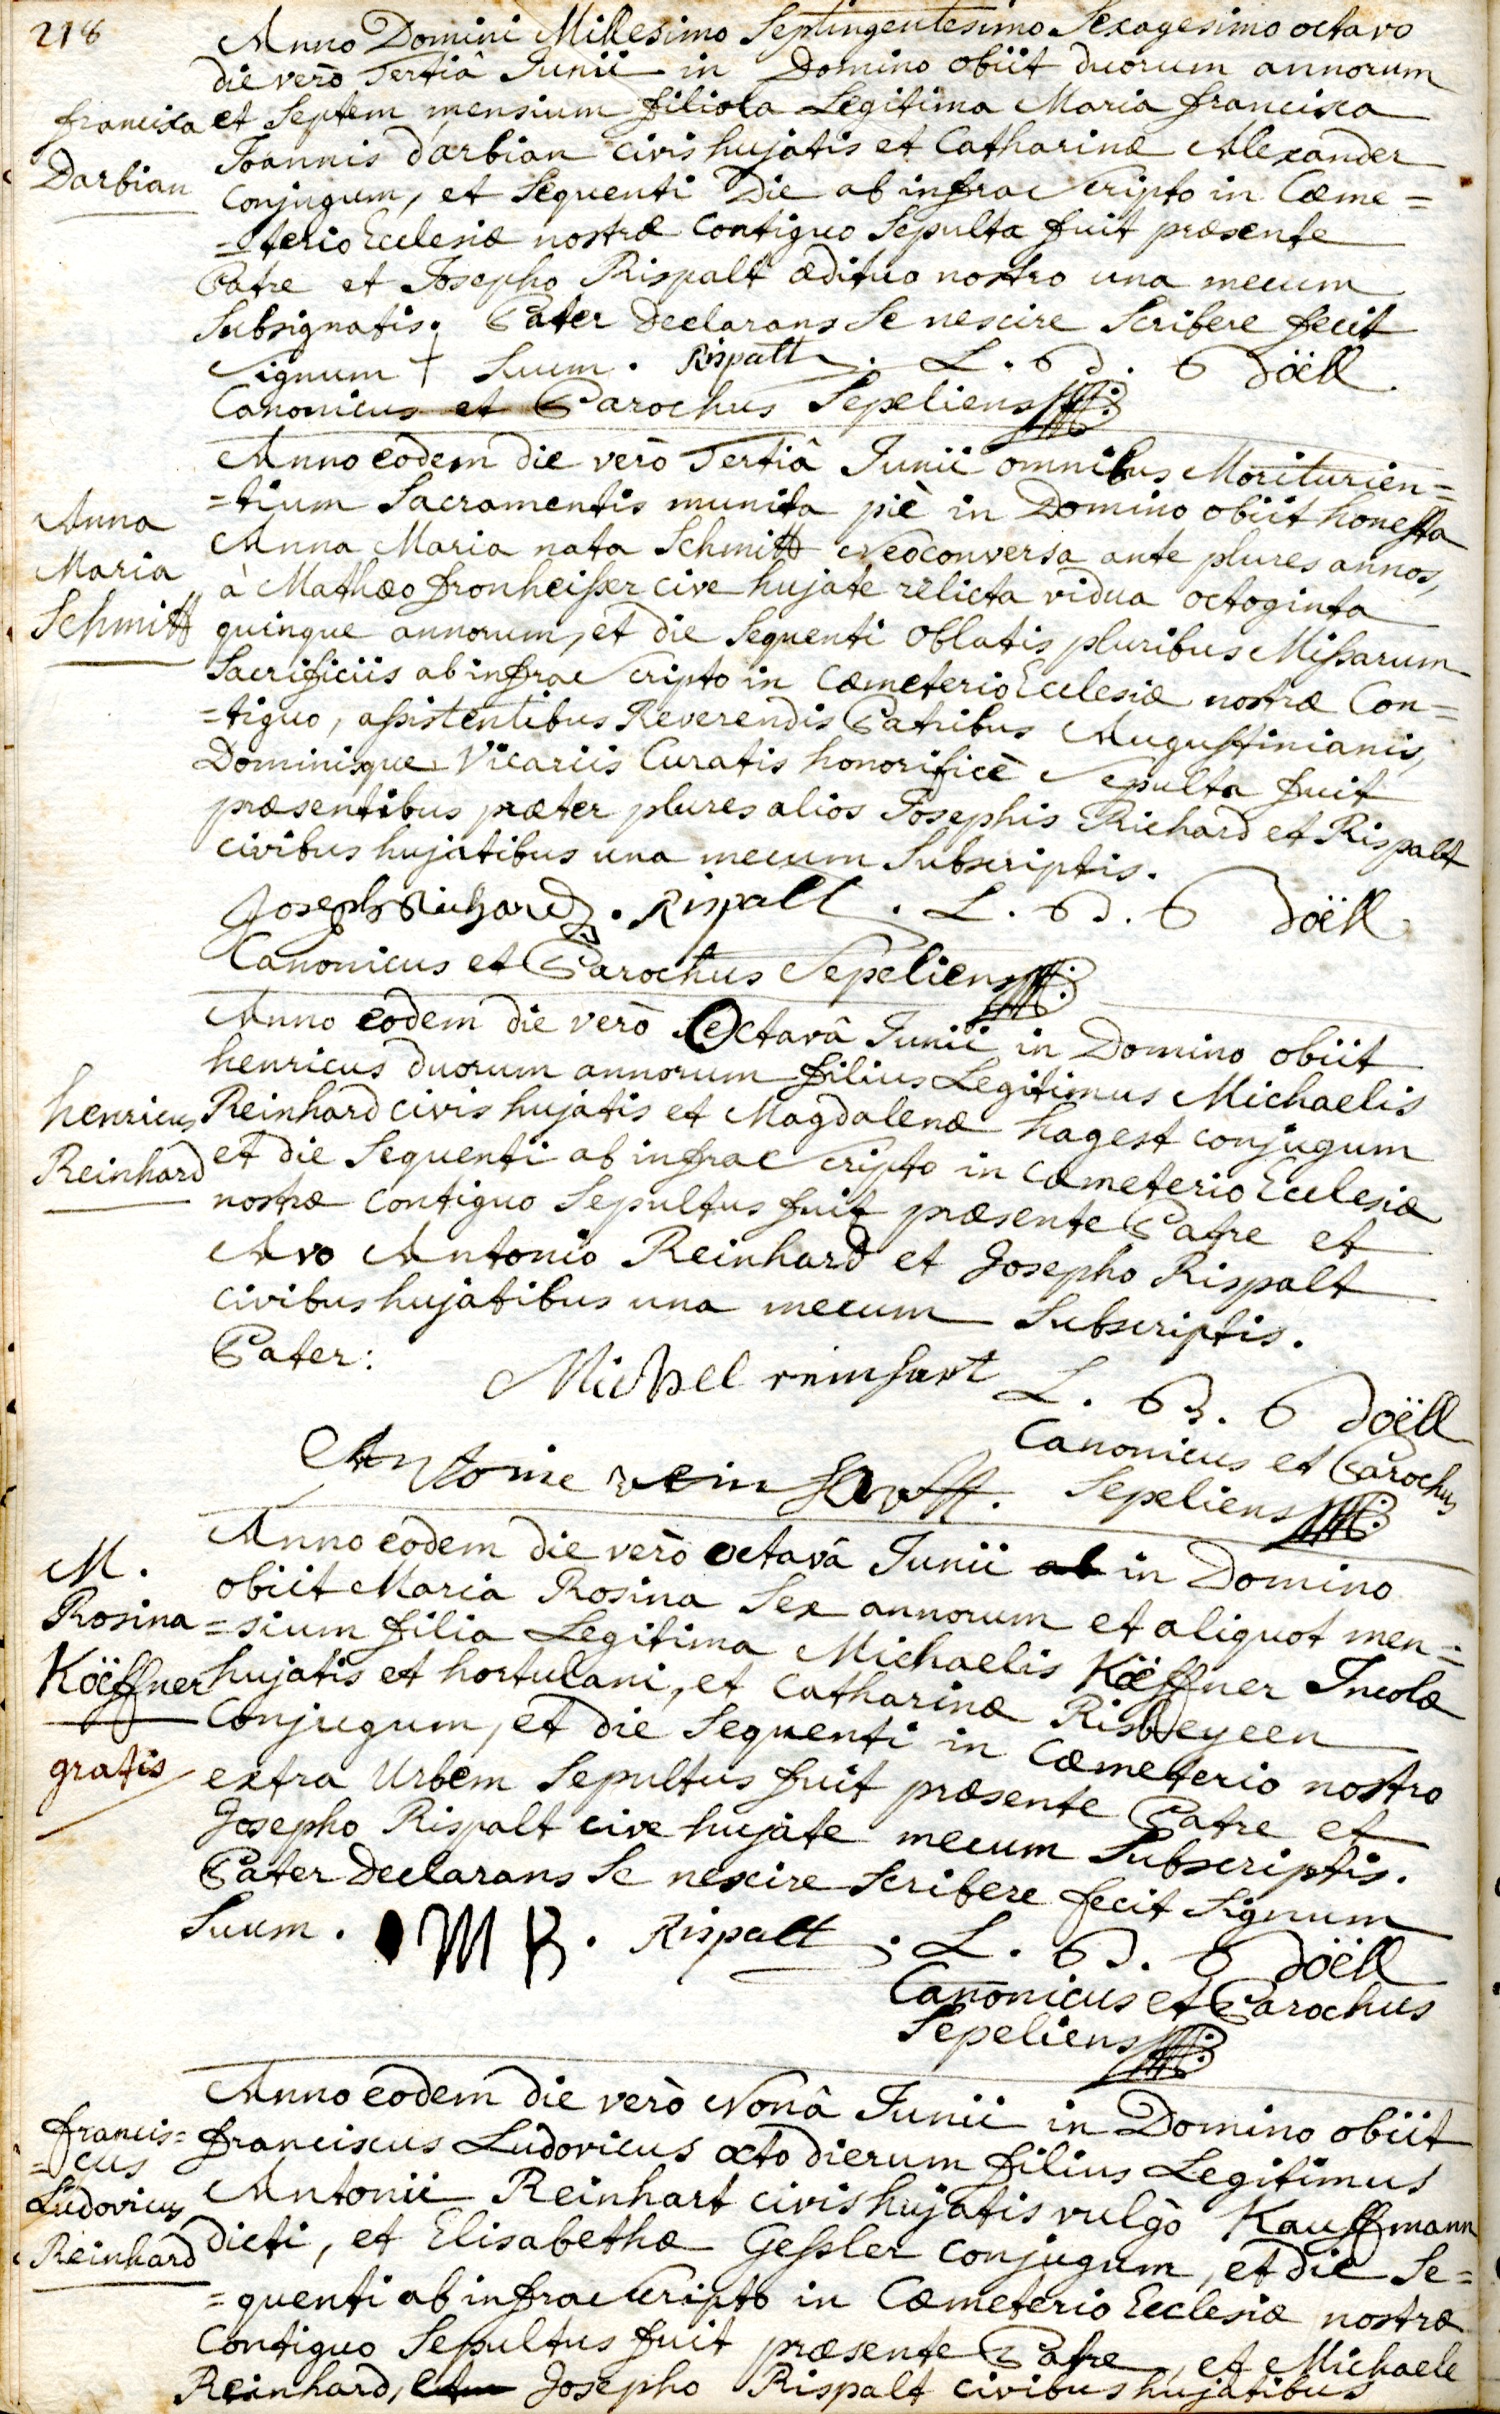 218
Anno Domini Millesimo Septingentesimo Sexagesimo octavo
die verò Tertiâ Junii in Domino obiit duorum annorum
francisca
et Septem mensium filiola Legitima Maria francisca
Darbian
Joannis darbian civis hujatis et Catharinæ Alexander
Conjugum, et Sequenti Die ab infrascripto in Cæme=
=terio Ecclesiæ nostræ Contiguo Sepulta fuit præsente
Patre et Josepho Rispalt ædituo nostro una mecum
Subsignatis. Pater Declarans Se nescire Scribere fecit
Signum + Suum. Rispalt. L. döell
Canonicus et Parochus Sepeliens
Anno eodem die verò Tertiâ Junii omnibus Moriturien=
=tium Sacramentis munita piè in Domino obiit honesta
Anna
Maria
Schmitt
Anna Maria nata Schmitt Neoconversa ante plures annos,
à Mathæo fronheisser cive hujate relicta vidua octoginta
quinque annorum, et die Sequenti oblatis pluribus Missarum
Sacrificiis ab infrascripto in Cæmeterio Ecclesiæ nostræ Con=
=tiguo, assistentibus Reverendis Patribus Augustinianis,
Dominisque Vicariis Curatis honorificè Sepulta fuit
præsentibus præter plures alios Josephis Richard et Rispalt
civibus hujatibus una mecum Subscriptis.
Joseph Richard. Rispalt. L. döell
Canonicus et Parochus Sepeliens
Anno eodem die verò Octavâ Junii in Domino obiit
henricus duorum annorum filius Legitimus Michaelis
henricus
Reinhard
Reinhard civis hujatis et Magdalenæ hagest conjugum
et die Sequenti ab infrascripto in Cæmeterio Ecclesiæ
nostræ Contiguo Sepultus fuit præsente Patre et
Avo Antonio Reinhard et Josepho Rispalt
civibus hujatibus una mecum Subscriptis.
Pater: Michel reinhart L. döell
Canonicus et Parochus
Antonie reinhartt. Sepeliens
Anno eodem die verò octavâ Junii ab in Domino
M.
Rosina
Köeffner
gratis
obiit Maria Rosina Sex annorum et aliquot men=
=sium filia Legitima Michaelis Köeffner Incolæ
hujatis et hortulani, et Catharinæ
Conjugum, et die Sequenti in Cæmeterio nostro
extra Urbem Sepultus fuit præsente Patre et
Josepho Rispalt cive hujate mecum Subscriptis.
Pater Declarans Se nescire Scribere fecit Signum
Suum. M K. Rispalt. L. döell
Canonicus et Parochus
Sepeliens
Anno eodem die verò Nonâ Junii in Domino obiit
francis=
=cus
Ludovicus
Reinhard
franciscus Ludovicus octo dierum filius Legitimus
Antonii Reinhart civis hujatis vulgò Kauffmann
dicti, et Elisabethæ Gessler conjugum, et die Se=
=quenti ab infrascripto in Cæmeterio Ecclesiæ nostræ
Contiguo Sepultus fuit præsente Patre, et Michaele
Reinhard, Josepho Rispalt civibus hujatibus